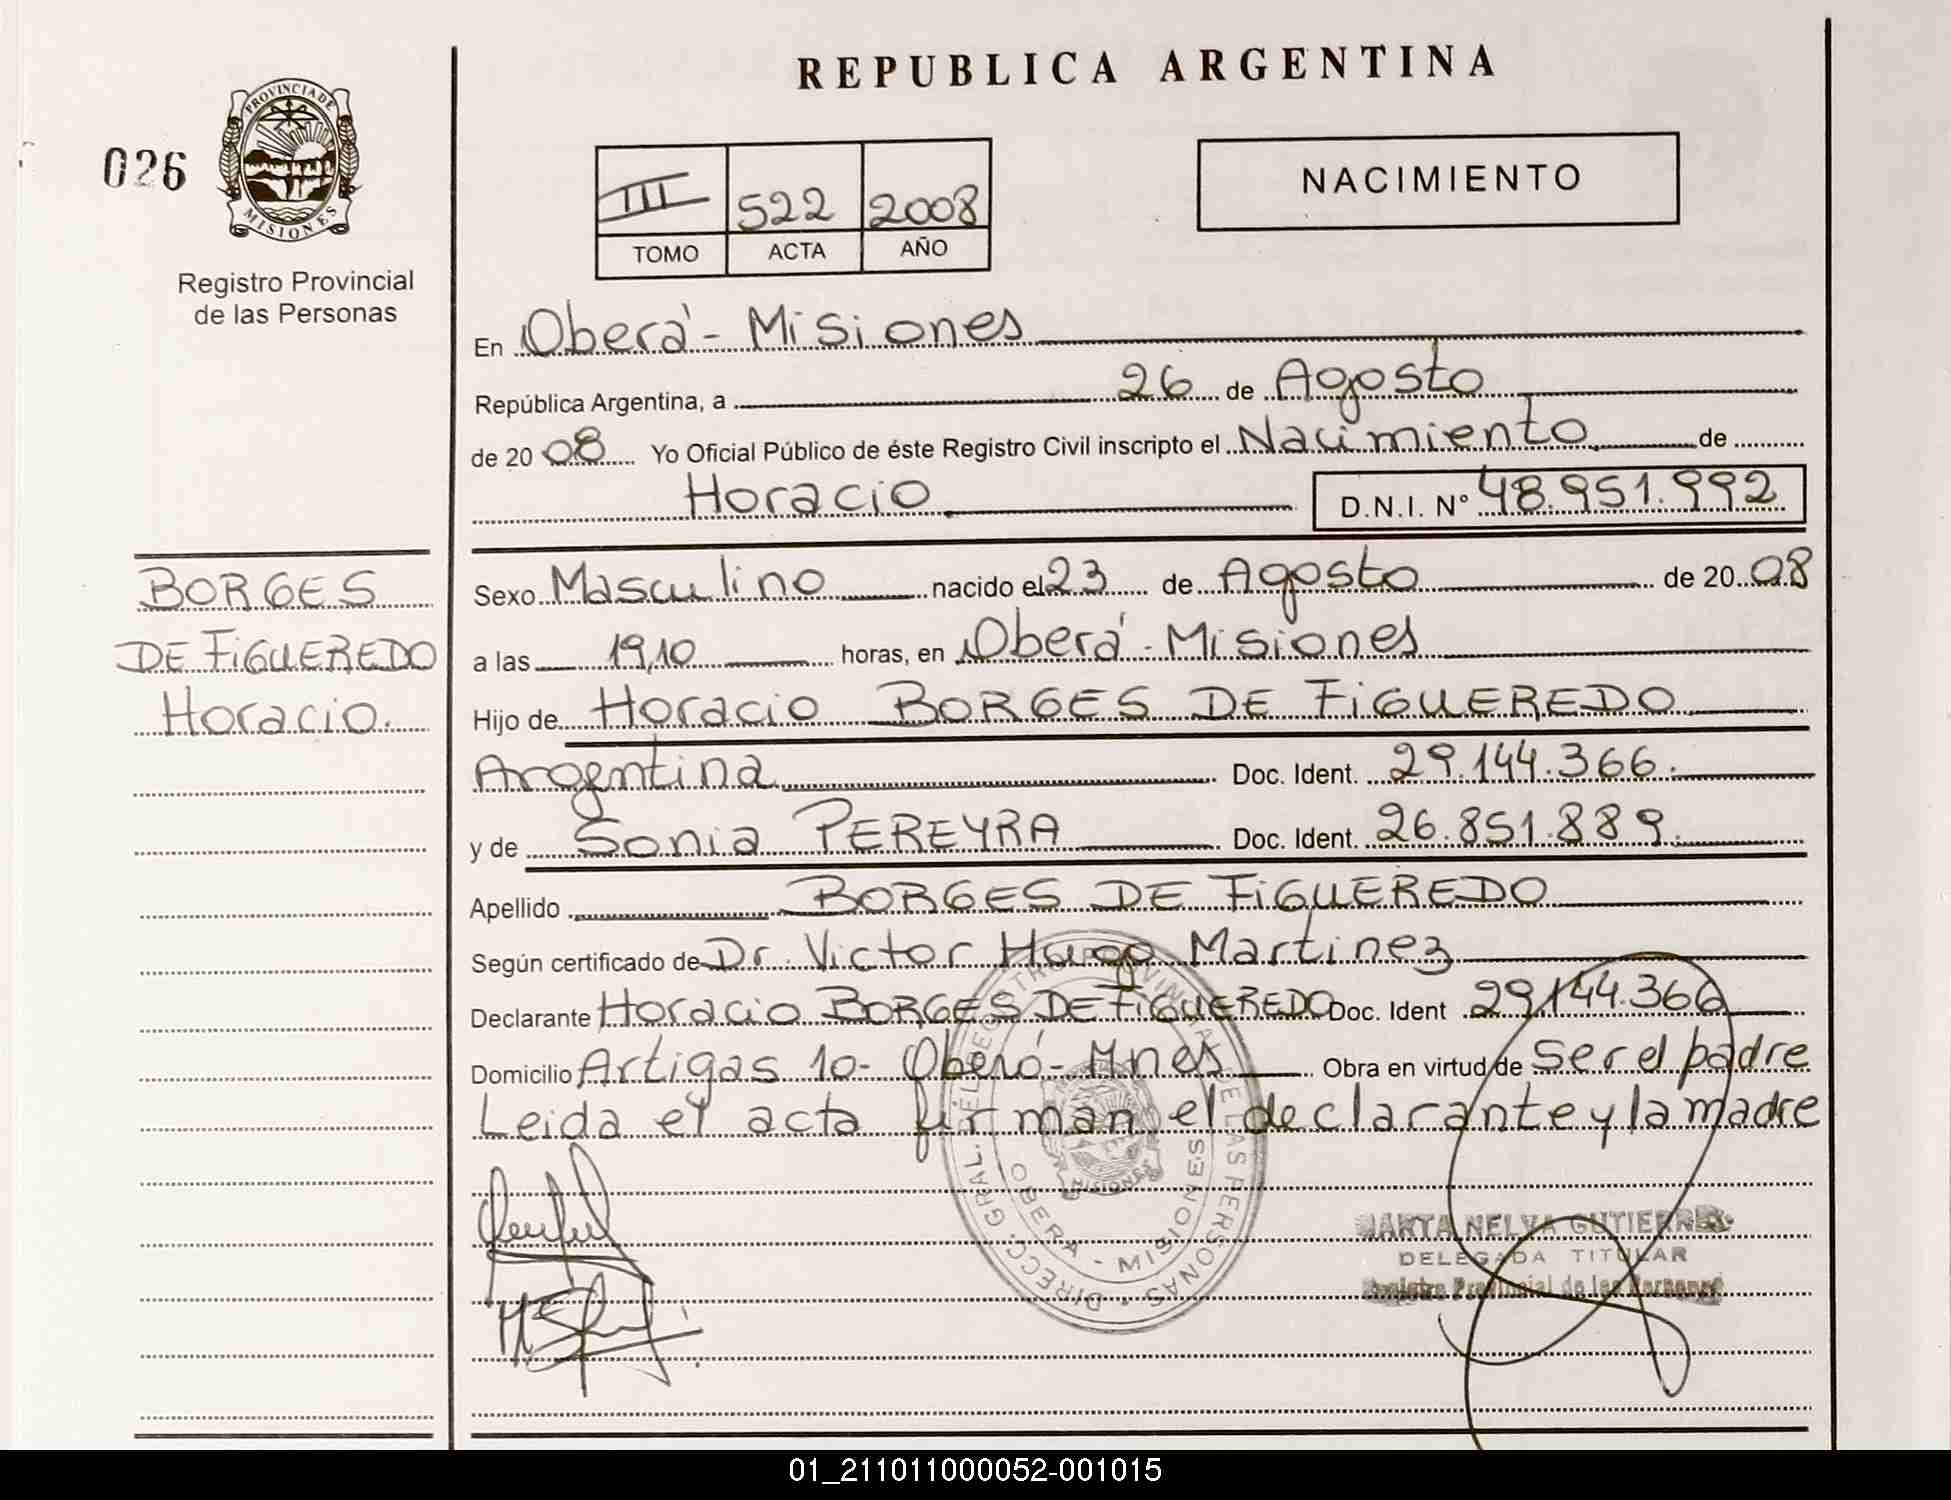 REPUBLICA ARGENTINA
026
PROVINCIA DE
MISIONES
Registro Provincial
de las Personas
III 522 2008
TOMO ACTA AÑO
NACIMIENTO
En Oberá - Misiones
República Argentina, a 26 de Agosto
de 20 08 Yo Oficial Público de éste Registro Civil inscripto el Nacimiento de
Horacio D.N.I. Nº 48.951.992
BORGES
DE FiGUEREDO
Horacio.
Sexo Masculino nacido el 23 de Agosto de 20 08
a las 19,10 horas, en Oberá - Misiones
Hijo de Horacio BORGES DE FiGUEREDO
Argentina Doc. Ident. 29.144.366.
y de Sonia PEREYRA Doc. Ident. 26.851.889.
Apellido BORGES DE FiGUEREDO
Según certificado de Dr. Victor Hugo Martinez
Declarante Horacio BORGES DE FiGUEREDO Doc. Ident 29.144.366
Domicilio Artigas 10- Oberá - Mnes Obra en virtud de ser el padre
Leida el acta firman el declarante y la madre
DIRECC. GRAL. DEL REGISTRO PROVINCIAL DE LAS PERSONAS
OBERA - MISIONES
MISIONES
MARTA NELVA GUTIERREZ
DELEGADA TITULAR
Registro Provincial de las Personas
01_211011000052-001015